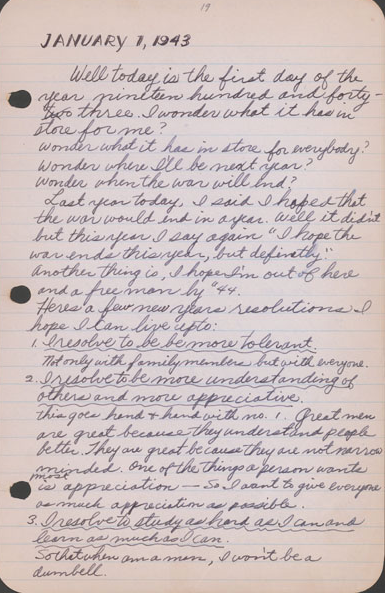 19
JANUARY 1, 1943
Well today is the first day of the
year nineteen hundred and forty-
two three. I wonder what it has in
store for me?
Wonder what it has in store for everybody?
Wonder where I'll be next year?
Wonder when the war will end?
Last year today, I said I hoped that
the war would end in a year. Well it didn't
but this year I say again "I hope the
war ends this year, but definitly."
Another thing is, I hope I'm out of here
and a free man by "44.
Here's a few new years resolutions I
hope I can live upto:
1. I resolve to be be more tolerant.
Not only with family members but with everyone.
2. I resolve to be more understanding of
others and more appreciative.
This goes hand & hand with no. 1. Great men
are great because they understand people
better. They are great because they are not narrow
minded. One of the things a person wants
most is appreciation — So I want to give everyone
as much appreciation as possible.
3. I resolve to study as hard as I can and
learn as much as I can.
So that when am a man, I won't be a
dumbell.